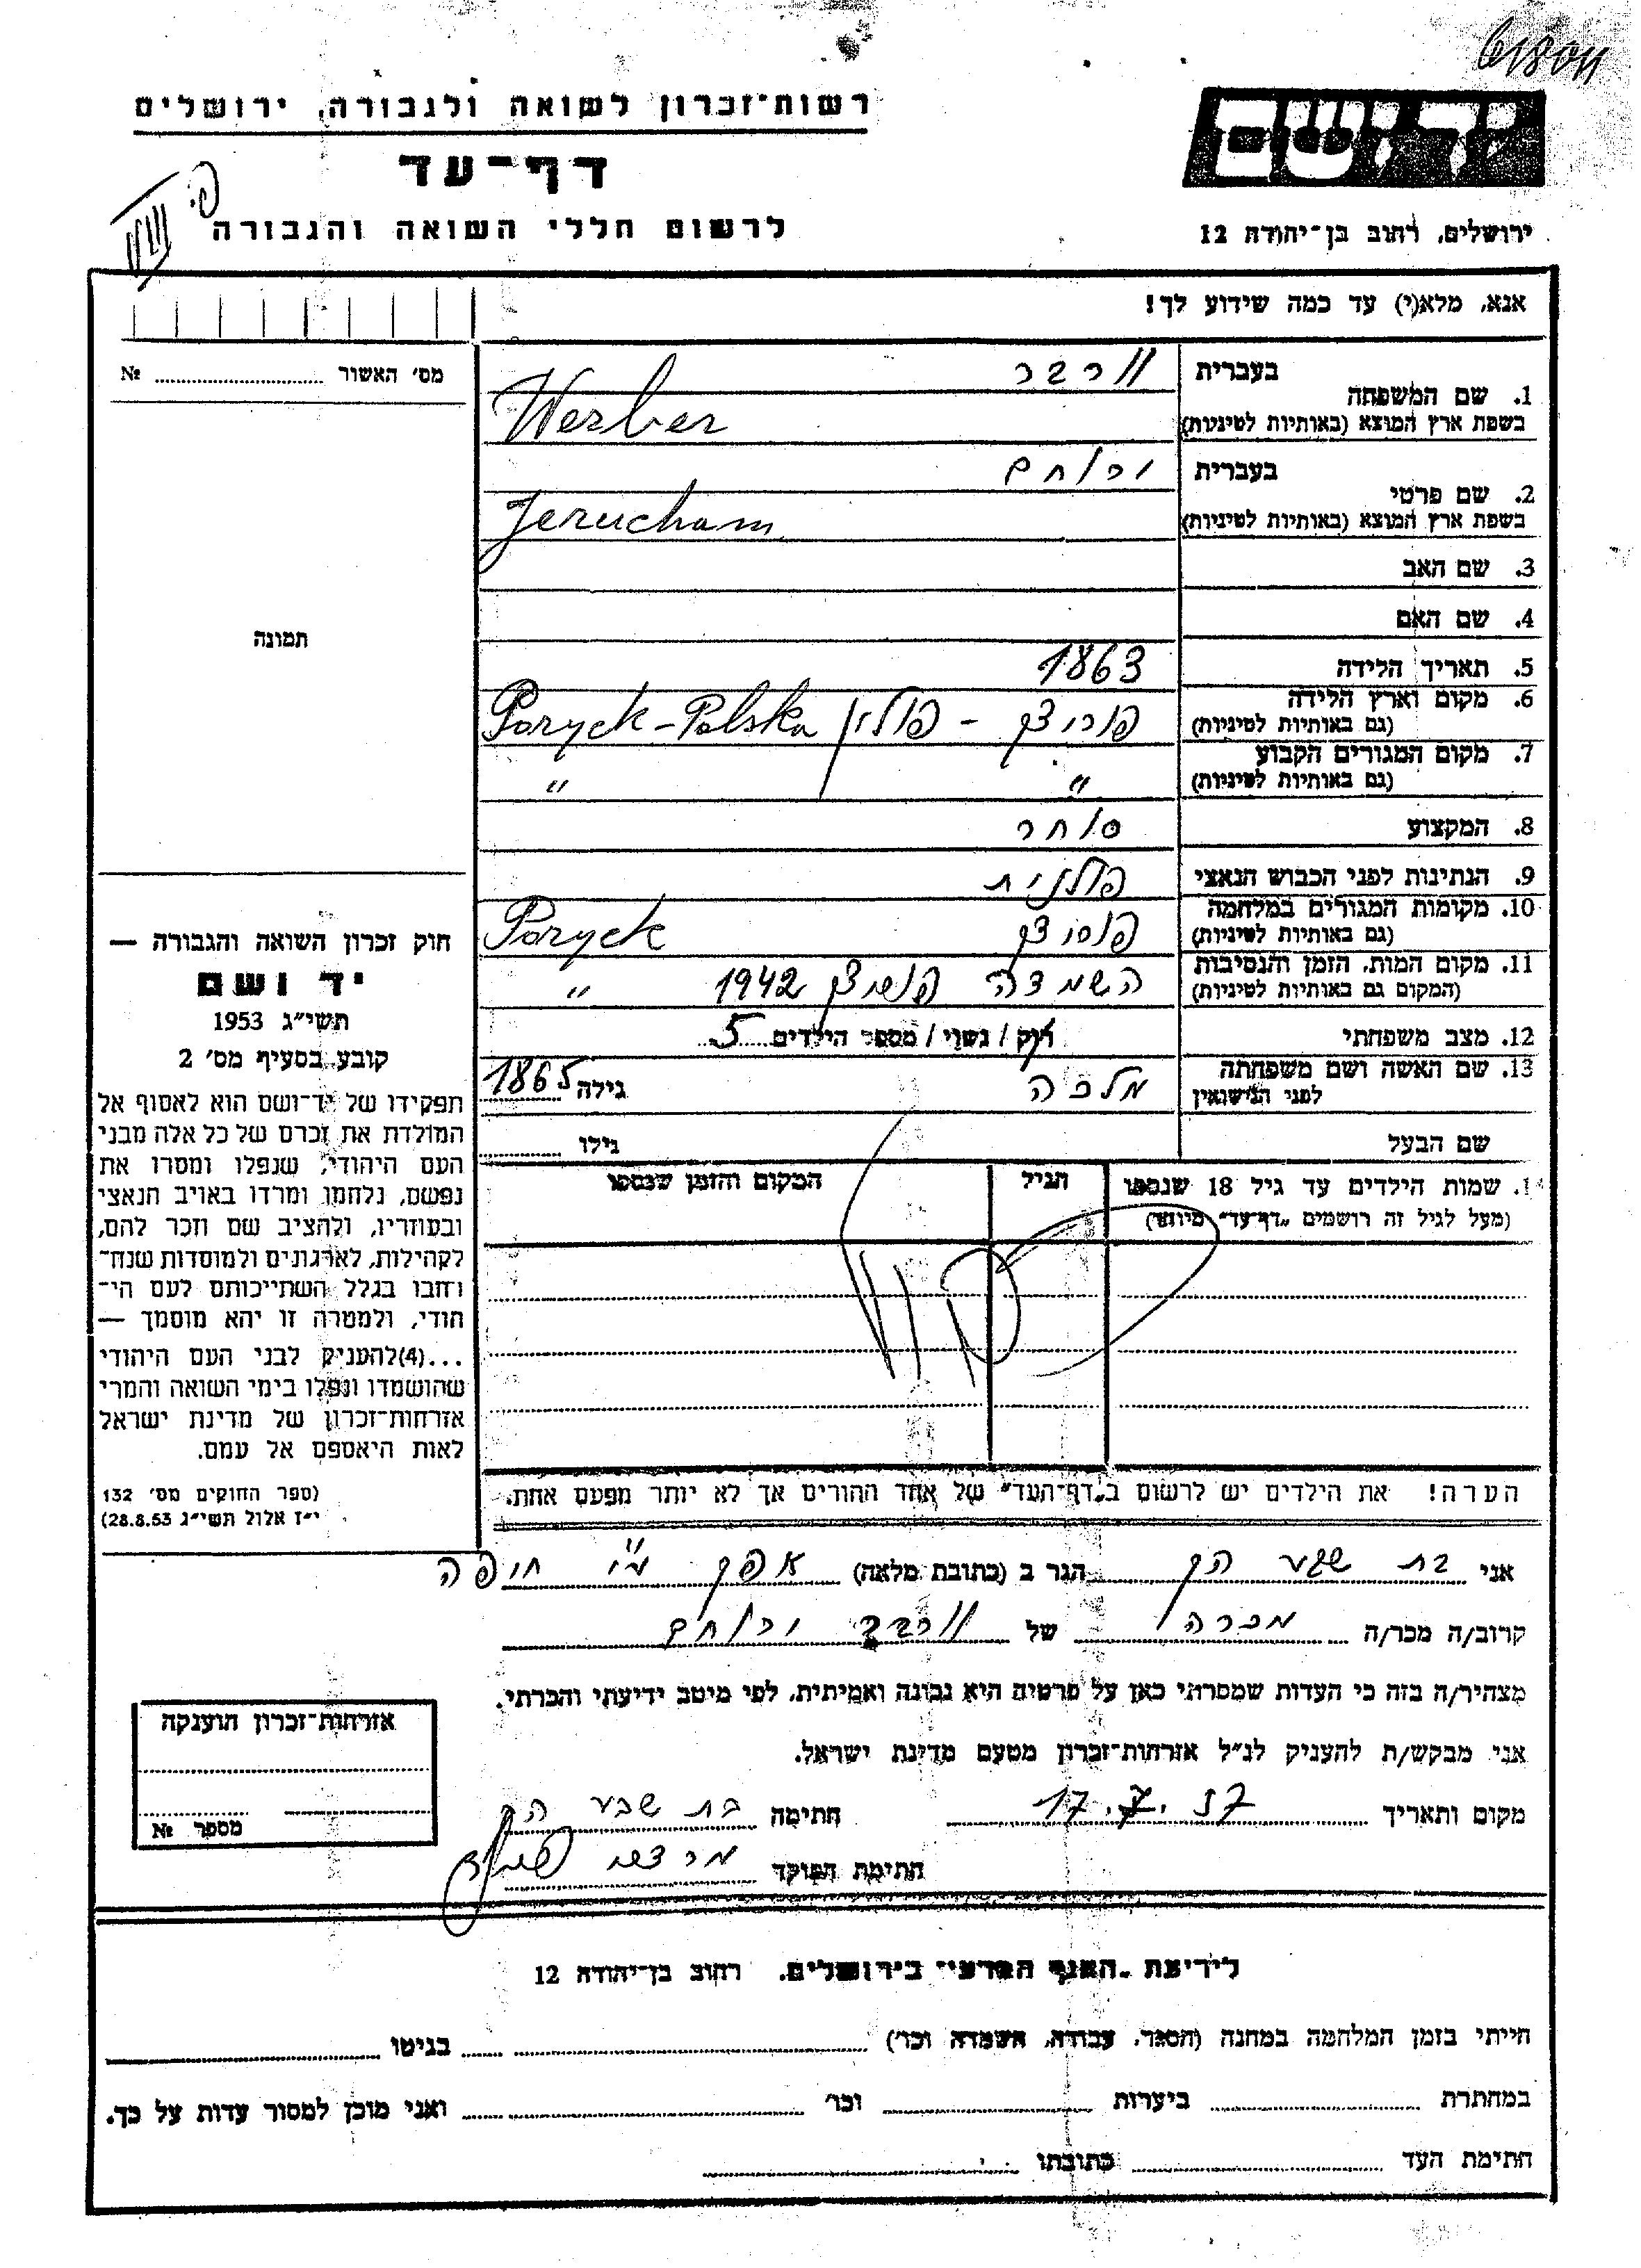 רשות־זכרון לשואה ולגבורה, ירושלים
יד ושם
דף־עד
לרשום חללי השואה והגבורה
ירושלים, רחוב בן־יהודה 12
אנא, מלא(י) עד כמה שידוע לך!
מס׳ האשור № ....................
1. שם המשפחה
בעברית ורבר
בשפת ארץ המוצא (באותיות לטיניות) Werber
2. שם פרטי
בעברית ירוחם
בשפת ארץ המוצא (באותיות לטיניות) Jerucham
3. שם האב
4. שם האם
תמונה
5. תאריך הלידה 1863
6. מקום וארץ הלידה
(גם באותיות לטיניות) פוריצק - פולין Poryck - Polska
7. מקום המגורים הקבוע
(גם באותיות לטיניות) " "
8. המקצוע סוחר
9. הנתינות לפני הכבוש הנאצי פולנית
10. מקומות המגורים במלחמה
(גם באותיות לטיניות) פוריצק Poryck
11. מקום המות, הזמן והנסיבות
(המקום גם באותיות לטיניות) השמדה פוריצק 1942 "
12. מצב משפחתי רוק / נשוי / מספר הילדים 5
13. שם האשה ושם משפחתה
לפני הנישואין מלכה גילה 1865
שם הבעל גילו
14. שמות הילדים עד גיל 18 שנספו
(מעל לגיל זה רושמים „דף־עד” מיוחד)
הגיל
המקום והזמן שנספו
הערה! את הילדים יש לרשום ב„דף־העד” של אחד ההורים אך לא יותר מפעם אחת.
חוק זכרון השואה והגבורה —
יד ושם
תשי״ג 1953
קובע בסעיף מס׳ 2
תפקידו של יד־ושם הוא לאסוף אל
המולדת את זכרם של כל אלה מבני
העם היהודי, שנפלו ומסרו את
נפשם, נלחמו ומרדו באויב הנאצי
ובעוזריו, ולהציב שם וזכר להם,
לקהילות, לארגונים ולמוסדות שנח־
רחבו בגלל השתייכותם לעם הי־
הודי, ולמטרה זו יהא מוסמך —
...(4)להעניק לבני העם היהודי
שהושמדו ונפלו בימי השואה והמרי
אזרחות־זכרון של מדינת ישראל
לאות היאספם אל עמם.
(ספר החוקים מס׳ 132
י״ז אלול תשי״ג 28.8.53)
אני בת שבע הק הגר ב (כתובת מלאה) חיפה
קרוב/ה מכר/ה מכרה של ורבר ירוחם
מצהיר/ה בזה כי העדות שמסרתי כאן על פרטיה היא נכונה ואמיתית, לפי מיטב ידיעתי והכרתי.
אני מבקש/ת להעניק לנ״ל אזרחות־זכרון מטעם מדינת ישראל.
מקום ותאריך 17.7.57 חתימה בת שבע הק
חתימת הפוקד
אזרחות־זכרון הוענקה
מספר №
לידיעת רחוב בן־יהודה 12
הייתי בזמן המלחמה במחנה (הסגר, עבודה, השמדה וכו׳) בגיטו
במחתרת ביערות וכו׳ ואני מוכן למסור עדות על כך.
חתימת העד כתובתו